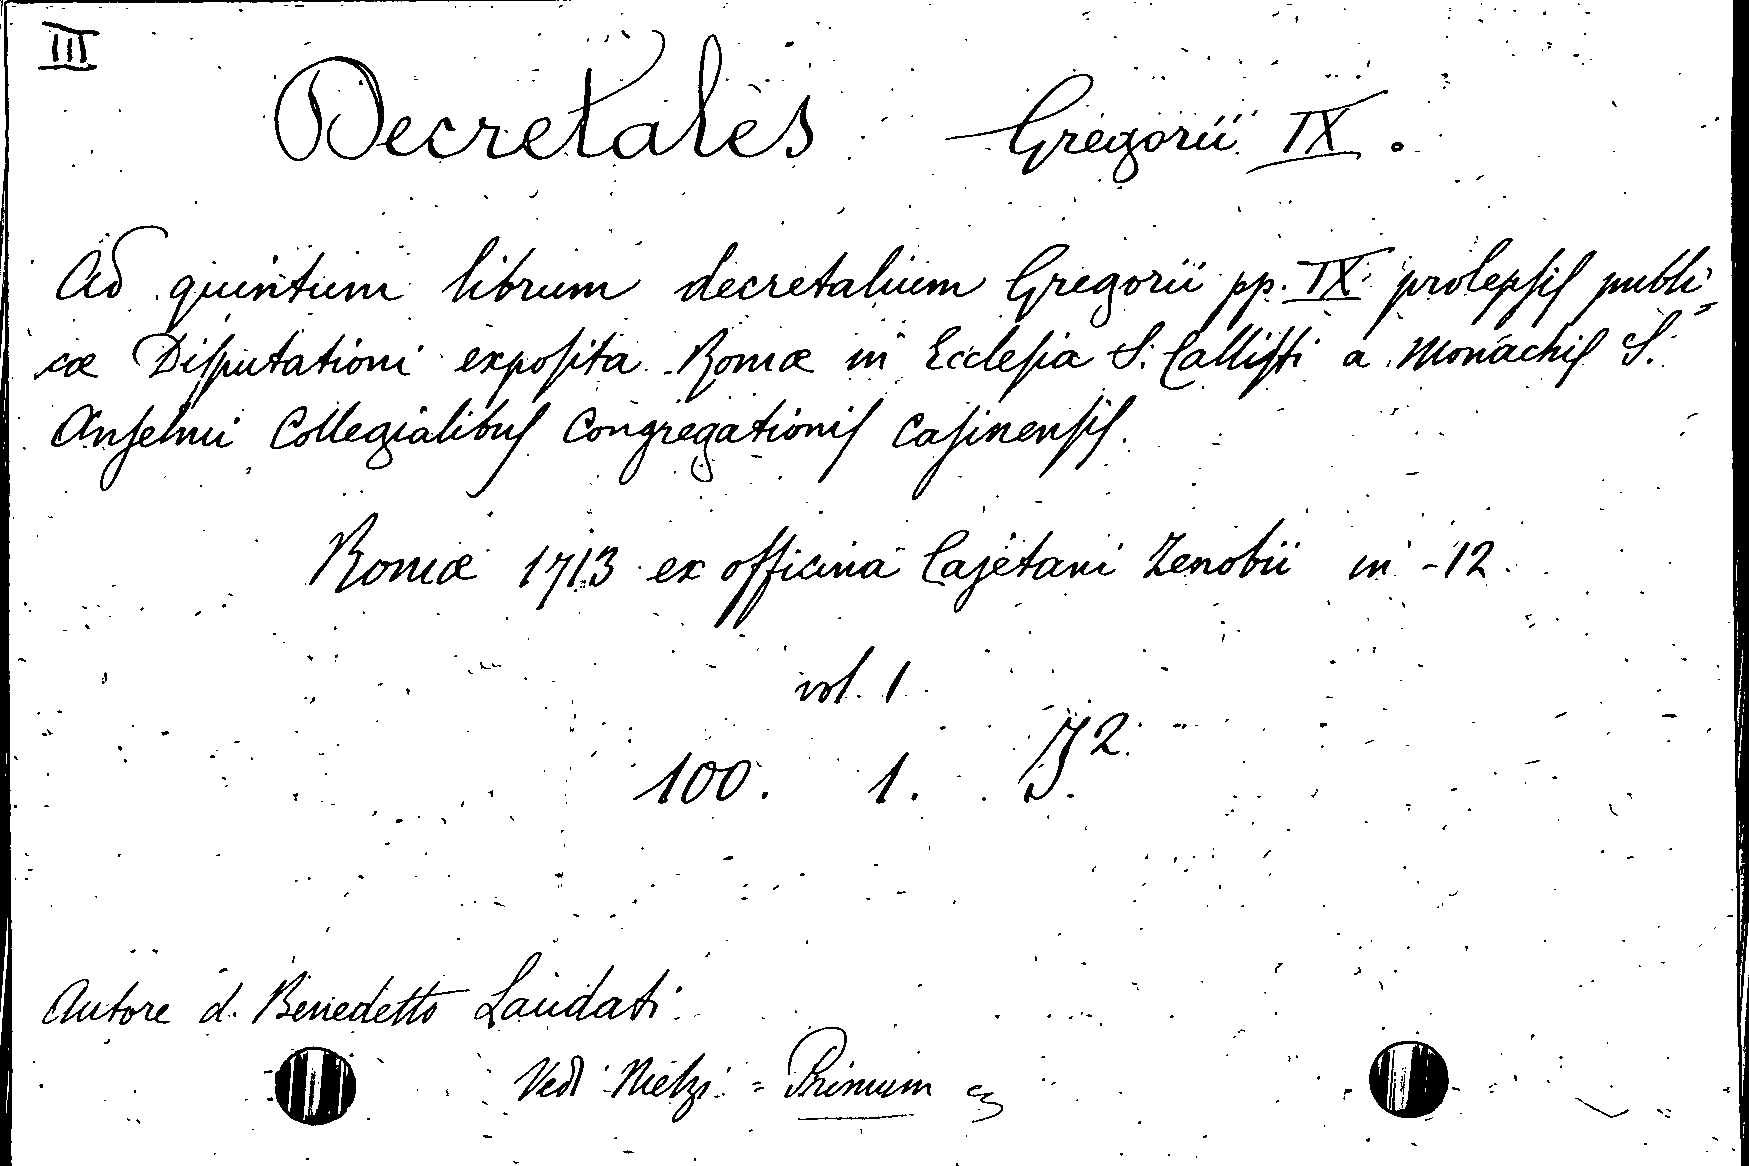 III
Decretales Gregorii IX.
Ad quintum librum decretalium Gregorii pp. IX prolepſiſ publi=
cæ Diſputationi expoſita Romæ in Eccleſia S. Calliſti a Monachiſ S.
Anſelmi Collegialibuſ Congregationiſ Caſinenſiſ.
Romæ 1713 ex officina Cajetani Zenobii in-12.
vol. 1.
100. 1. 2.
Autore d. Benedetto Laudati.
Vedi = Primum